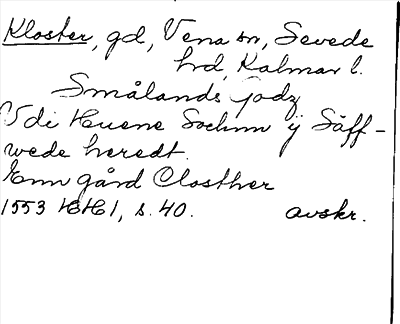 Kloster, gd, Vena sn, Sevede
hrd, Kalmar l.
Smålands godz
Vdi Huene Sochnn ÿ Säff-
wede heredt.
Enn gård Closther
1553 HH1, s. 40. avskr.